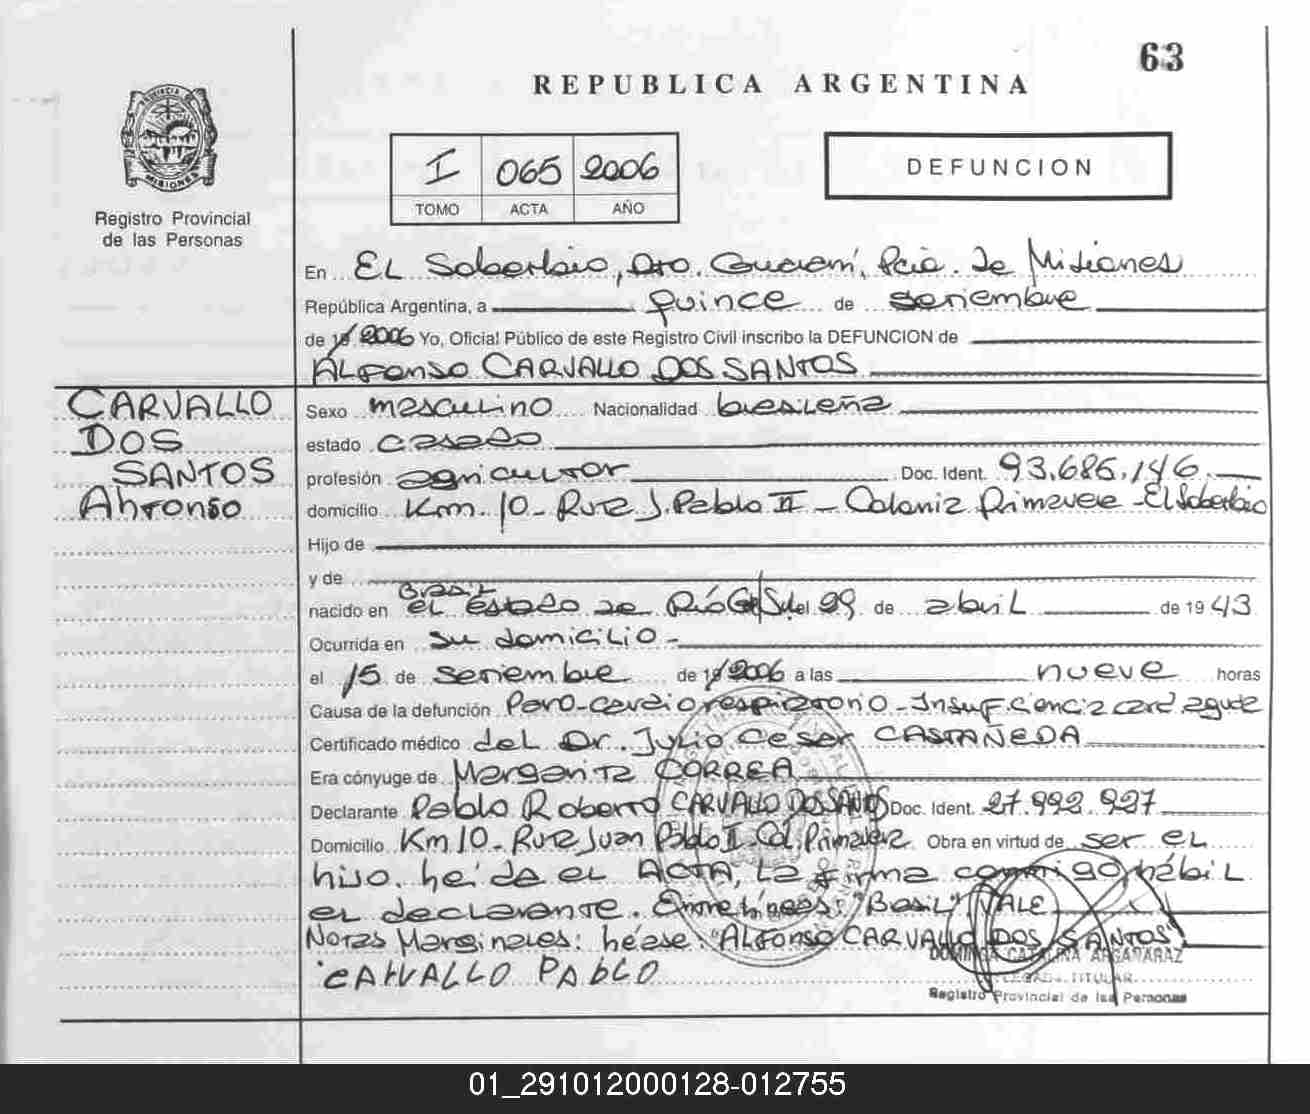 63
REPUBLICA ARGENTINA
PROVINCIA DE
MISIONES
Registro Provincial
de las Personas
I 065 2006
TOMO ACTA AÑO
DEFUNCION
En EL Soberbio, Dto. Guaraní, Pcia. de Misiones
República Argentina, a quince de setiembre
de 19 2006 Yo, Oficial Público de este Registro Civil inscribo la DEFUNCION de
ALFonso CARVALLO DOS SANTOS
CARVALLO
DOS
SANTOS
Sexo masculino Nacionalidad brasileña
estado casado
profesión agricultor Doc. Ident. 93.686.146
domicilio Km. 10 - Ruta J. Pablo II - Colonia Primavera - El Soberbio
Hijo de
y de
Brasil
nacido en el estado de Río G. do Sul el 29 de abril de 1943
Ocurrida en su domicilio -
el 15 de setiembre de 19 2006 a las nueve horas
Causa de la defunción Paro-cardiorespiratorio - Insuficiencia card. aguda
Certificado médico del Dr. Julio César CASTAÑEDA
Era cónyuge de Margarita CORREA
Declarante Pablo Roberto CARVALLO DOS SANTOS Doc. Ident. 27.992.927
Domicilio Km 10 - Ruta Juan Pablo II - Col. Primavera Obra en virtud de ser el
hijo. Leída el ACTA, la firma conmigo, hábil
el declarante. Entre líneas: "Brasil" VALE
Notas Marginales: Léase: "ALFonso CARVALLO DOS SANTOS"
CARVALLO PABLO
DOMINGA CATALINA ARGAÑARAZ
TITULAR
Registro Provincial de las Personas
01_291012000128-012755